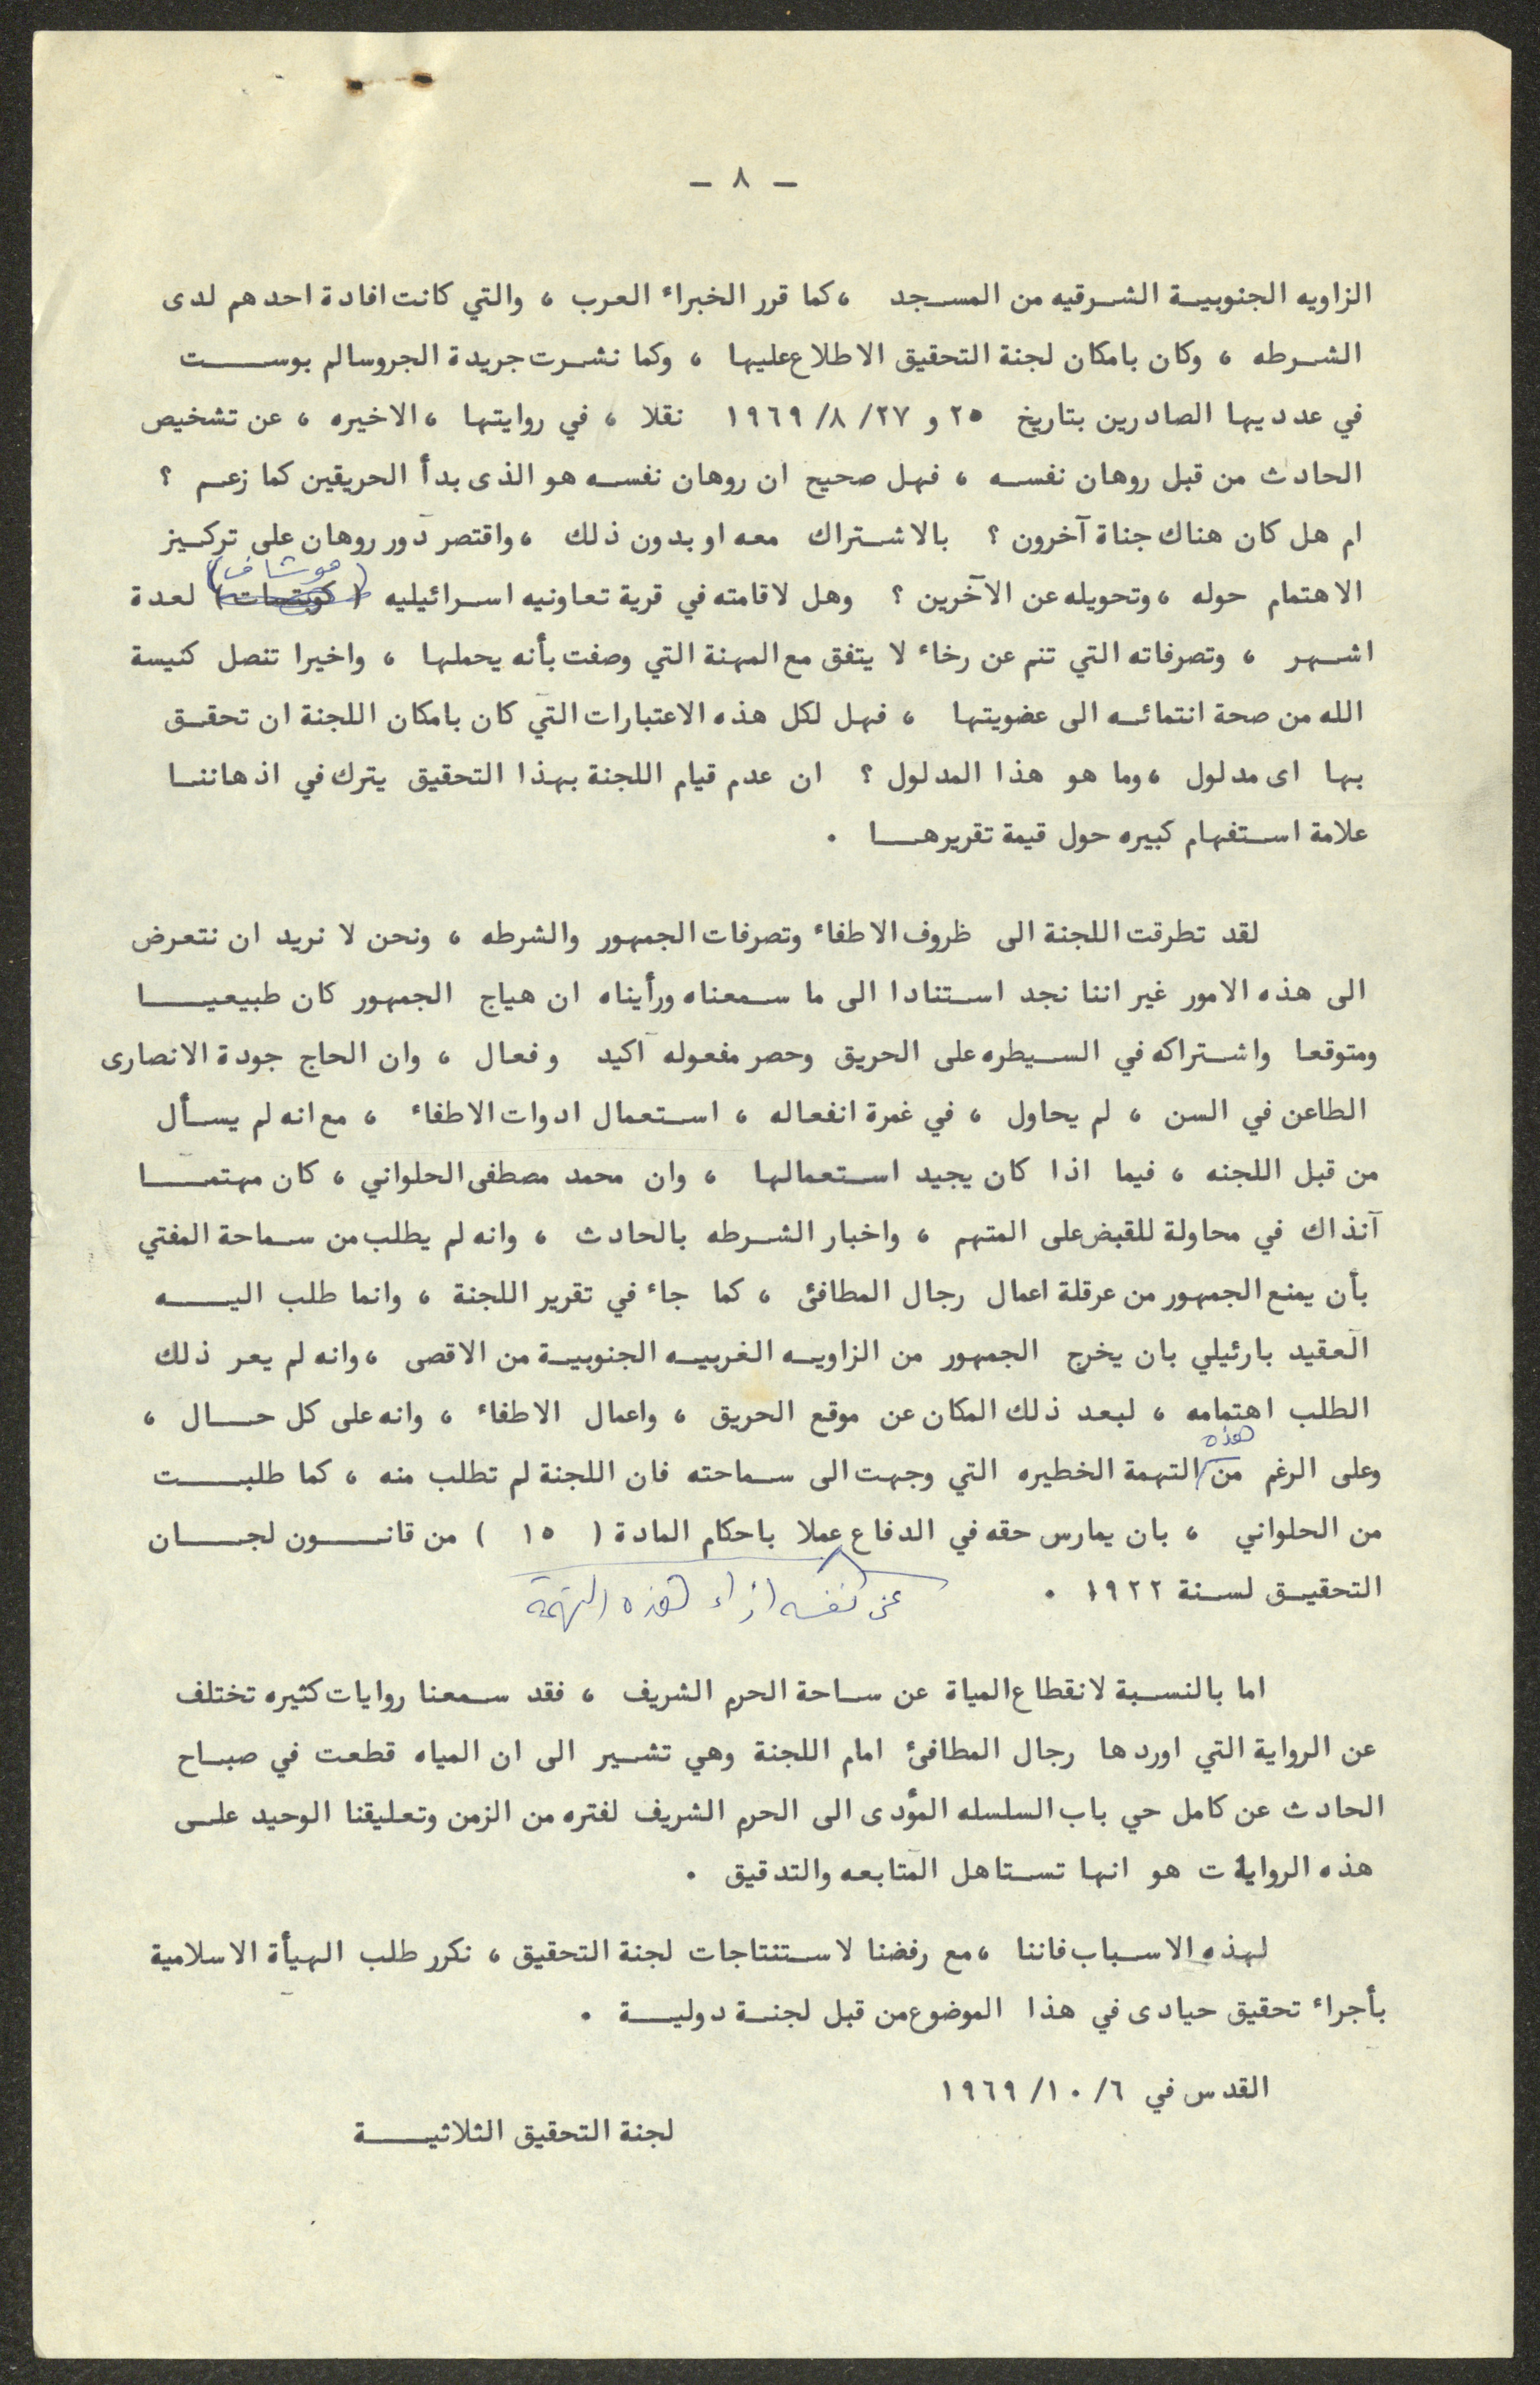 - ٨ -
الزاويه الجنوبية الشرقيه من المسجد ، كما قرر الخبراء العرب ، والتي كانت افادة احدهم لدى
الشرطه ، وكان بامكان لجنة التحقيق الاطلاع عليها ، وكما نشرت جريدة الجروسالم بوست
في عدديها الصادرين بتاريخ ٢٥ و ٢٧ /٨ /١٩٦٩ نقلا ، في روايتها ، الاخيره ، عن تشخيص
الحادث من قبل روهان نفسه ، فهل صحيح ان روهان نفسه هو الذى بدأ الحريقين كما زعم ؟
ام هل كان هناك جناة آخرون ؟ بالاشتراك معه او بدون ذلك ، واقتصر دور روهان على تركيز
(موشاف)
الاهتمام حوله ، وتحويله عن الآخرين ؟ وهل لاقامته في قرية تعاونيه اسرائيليه لعدة
اشهر ، وتصرفاته التي تنم عن رخاء لا يتفق مع المهنة التي وصفت بأنه يحملها ، واخيرا تنصل كنيسة
الله من صحة انتمائه الى عضويتها ، فهل لكل هذه الاعتبارات التي كان بامكان اللجنة ان تحقق
بها اى مدلول ، وما هو هذا المدلول ؟ ان عدم قيام اللجنة بهذا التحقيق يترك في اذهاننا
علامة استفهام كبيره حول قيمة تقريرها .
لقد تطرقت اللجنة الى ظروف الاطفاء وتصرفات الجمهور والشرطه ، ونحن لا نريد ان نتعرض
الى هذه الامور غير اننا نجد استنادا الى ما سمعناه ورأيناه ان هياج الجمهور كان طبيعيا
ومتوقعا واشتراكه في السيطره على الحريق وحصر مفعوله اكيد وفعال ، وان الحاج جودة الانصارى
الطاعن في السن ، لم يحاول ، في غمرة انفعاله ، استعمال ادوات الاطفاء ، مع انه لم يسأل
من قبل اللجنه ، فيما اذا كان يجيد استعمالها ، وان محمد مصطفى الحلواني ، كان مهتما
آنذاك في محاولة للقبض على المتهم ، واخبار الشرطه بالحادث ، وانه لم يطلب من سماحة المفتي
بأن يمنع الجمهور من عرقلة اعمال رجال المطافئ ، كما جاء في تقرير اللجنة ، وانما طلب اليه
العقيد بارئيلي بان يخرج الجمهور من الزاويه الغربيه الجنوبية من الاقصى ، وانه لم يعر ذلك
الطلب اهتمامه ، لبعد ذلك المكان عن موقع الحريق ، واعمال الاطفاء ، وانه على كل حال ،
هذه
وعلى الرغم من التهمة الخطيره التي وجهت الى سماحته فان اللجنة لم تطلب منه ، كما طلبت
من الحلواني ، بان يمارس حقه في الدفاع عملا باحكام المادة ( ١٥ ) من قانون لجان
التحقيق لسنة ١٩٢٢ .
عن نفسه ازاء هذه التهمة
اما بالنسبة لانقطاع المياة عن ساحة الحرم الشريف ، فقد سمعنا روايات كثيره تختلف
عن الرواية التي اوردها رجال المطافئ امام اللجنة وهي تشير الى ان المياه قطعت في صباح
الحادث عن كامل حي باب السلسله المؤدى الى الحرم الشريف لفتره من الزمن وتعليقنا الوحيد على
هذه الروايات هو انها تستاهل المتابعه والتدقيق .
لهذه الاسباب فاننا ، مع رفضنا لاستنتاجات لجنة التحقيق ، نكرر طلب الهيأة الاسلامية
بأجراء تحقيق حيادى في هذا الموضوع من قبل لجنة دولية .
القدس في ٦ /١٠ /١٩٦٩
لجنة التحقيق الثلاثية